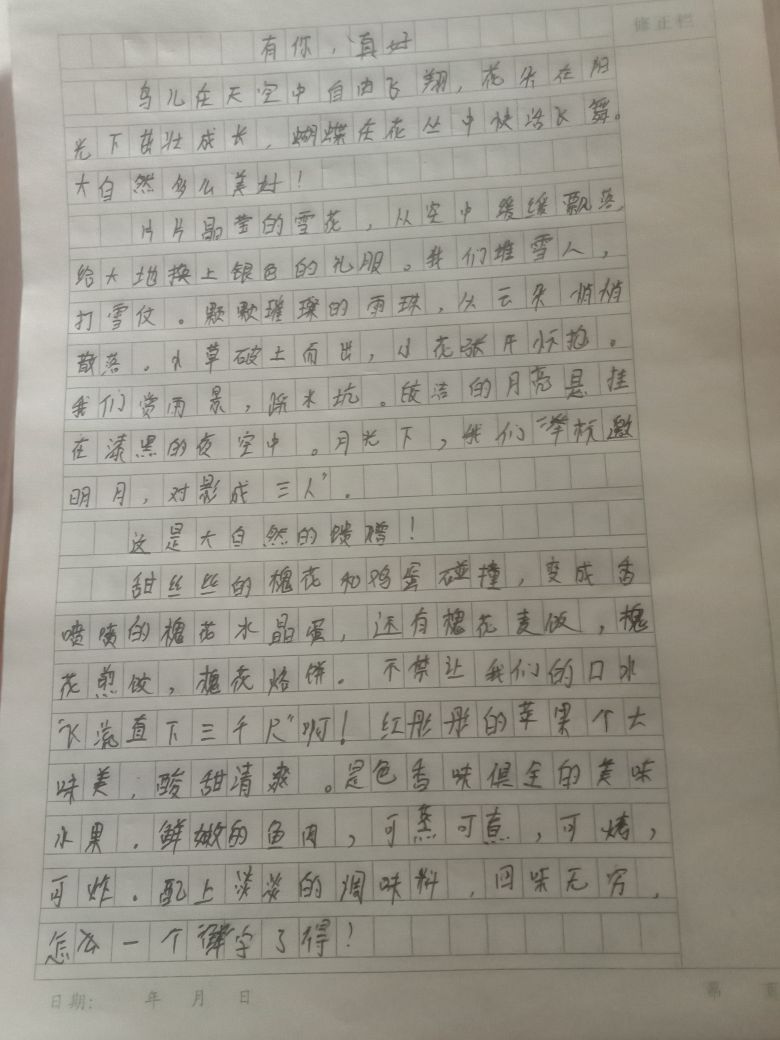 修正栏
有你，真好
鸟儿在天空中自由飞翔，花朵在阳
光下茁壮成长，蝴蝶在花丛中快活飞舞。
大自然多么美好！
片片晶莹的雪花，从空中缓缓飘落，
给大地换上银色的礼服。我们堆雪人，
打雪仗。颗颗璀璨的雨珠，从云朵悄悄
散落。小草破土而出，小花张开怀抱。
我们赏雨景，踩水坑。皎洁的月亮悬挂
在漆黑的夜空中。月光下，我们“举杯邀
明月，对影成三人”。
这是大自然的馈赠！
甜丝丝的槐花和鸡蛋碰撞，变成香
喷喷的槐花水晶蛋，还有槐花麦饭，槐
花煎饺，槐花烙饼。不禁让我们的口水
“飞流直下三千尺”啊！红彤彤的苹果个大
味美，酸甜清爽。是色香味俱全的美味
水果。鲜嫩的鱼肉，可蒸可煮，可烤，
可炸。配上淡淡的调味料，回味无穷，
怎么一个“鲜”字了得！
日期： 年 月 日
第 页